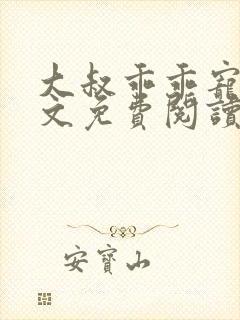 大叔乖乖寵
文免費閱讀
安寶山